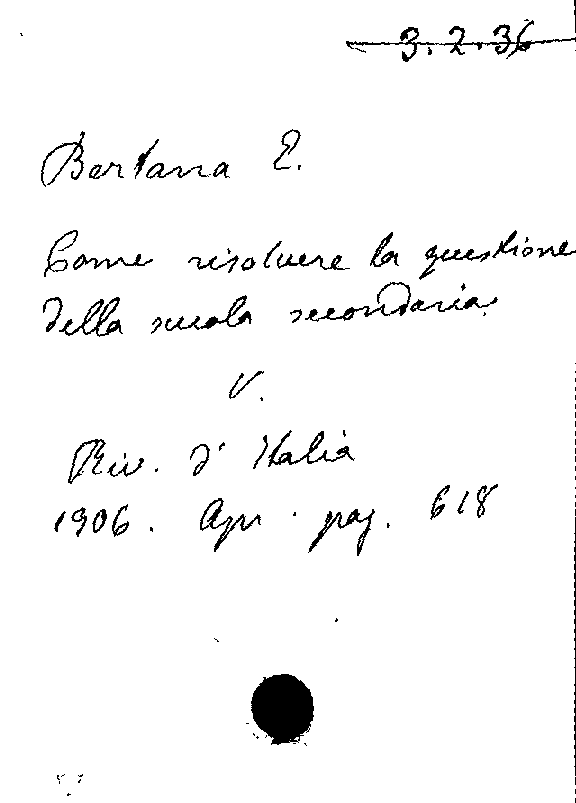 3.2.36
Bertana E.
Come risolvere la questione
della scuola secondaria.
V.
Riv. d'Italia
1906. Apr. pag. 618